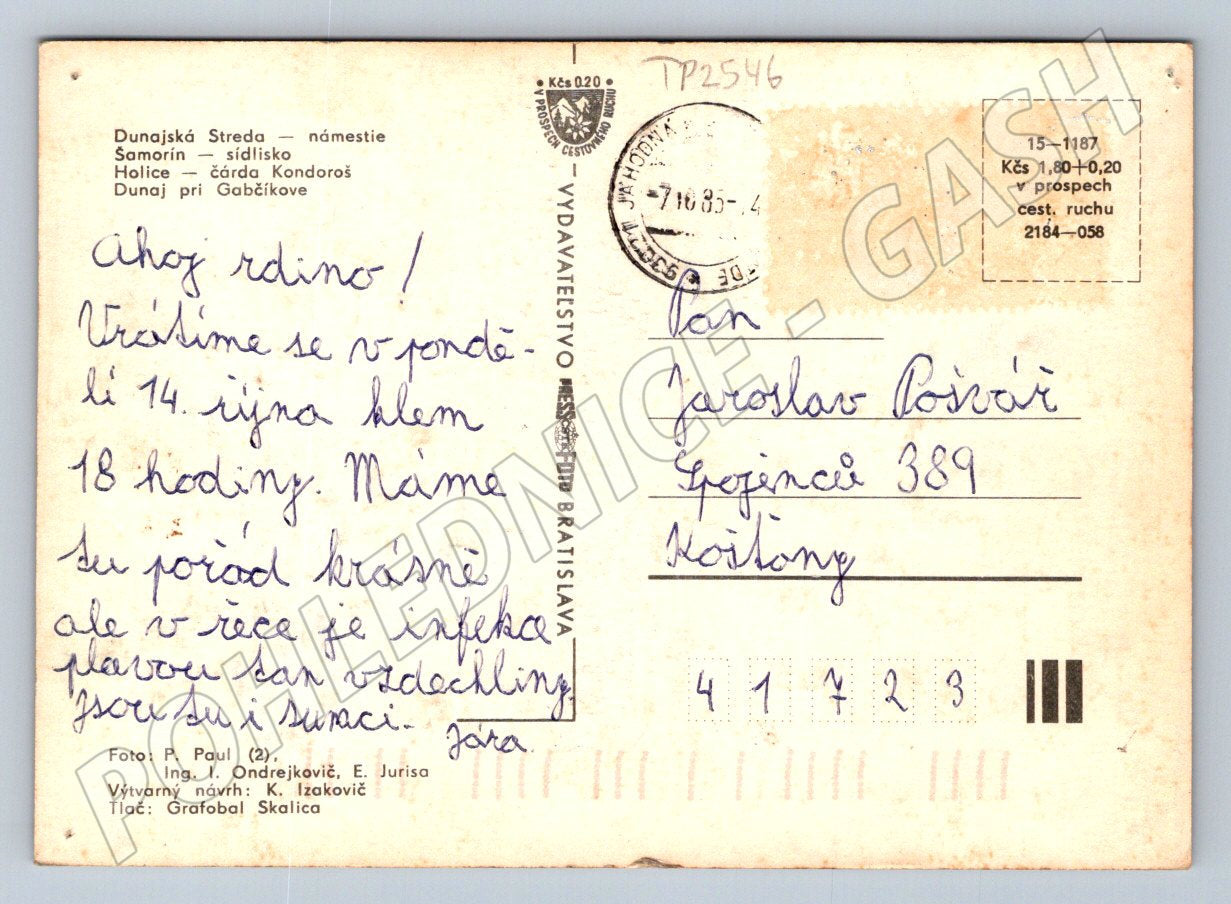 TP2546
• Kčs 0.20 •
V PROSPECH CESTOVNÉHO RUCHU
Dunajská Streda — námestie
Šamorín — sídlisko
Holice — čárda Kondoroš
Dunaj pri Gabčíkove
JAHODNÁ
-7.10.85-
15—1187
Kčs 1,80+0,20
v prospech
cest. ruchu
2184—058
Ahoj rdino!
Vrátíme se v pondě-
lí 14. října klem
18 hodiny. Máme
tu pořád krásně
ale v řece je infekce
plavou tan vzdechliny.
Jsou tu i sumci.
Jára
VYDAVATEĽSTVO PRESSFOTO BRATISLAVA
Pan
Jaroslav Pošvář
Spojenců 389
Košťany
4 1 7 2 3
Foto: P. Paul (2),
Ing. I. Ondrejkovič, E. Jurisa
Výtvarný návrh: K. Izakovič
Tlač: Grafobal Skalica
POHLEDNICE - GASH